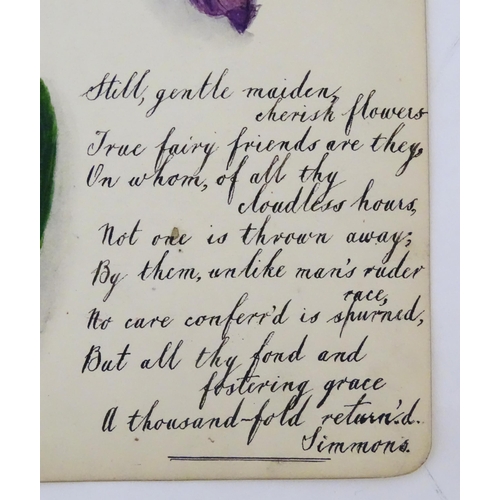 Still, gentle maiden,
cherish flowers
True fairy friends are they,
On whom, of all thy
cloudless hours,
Not one is thrown away;
By them, unlike man's ruder
race,
No care conferr'd is spurned,
But all thy fond and
fostering grace
A thousand-fold return'd.
Simmons.